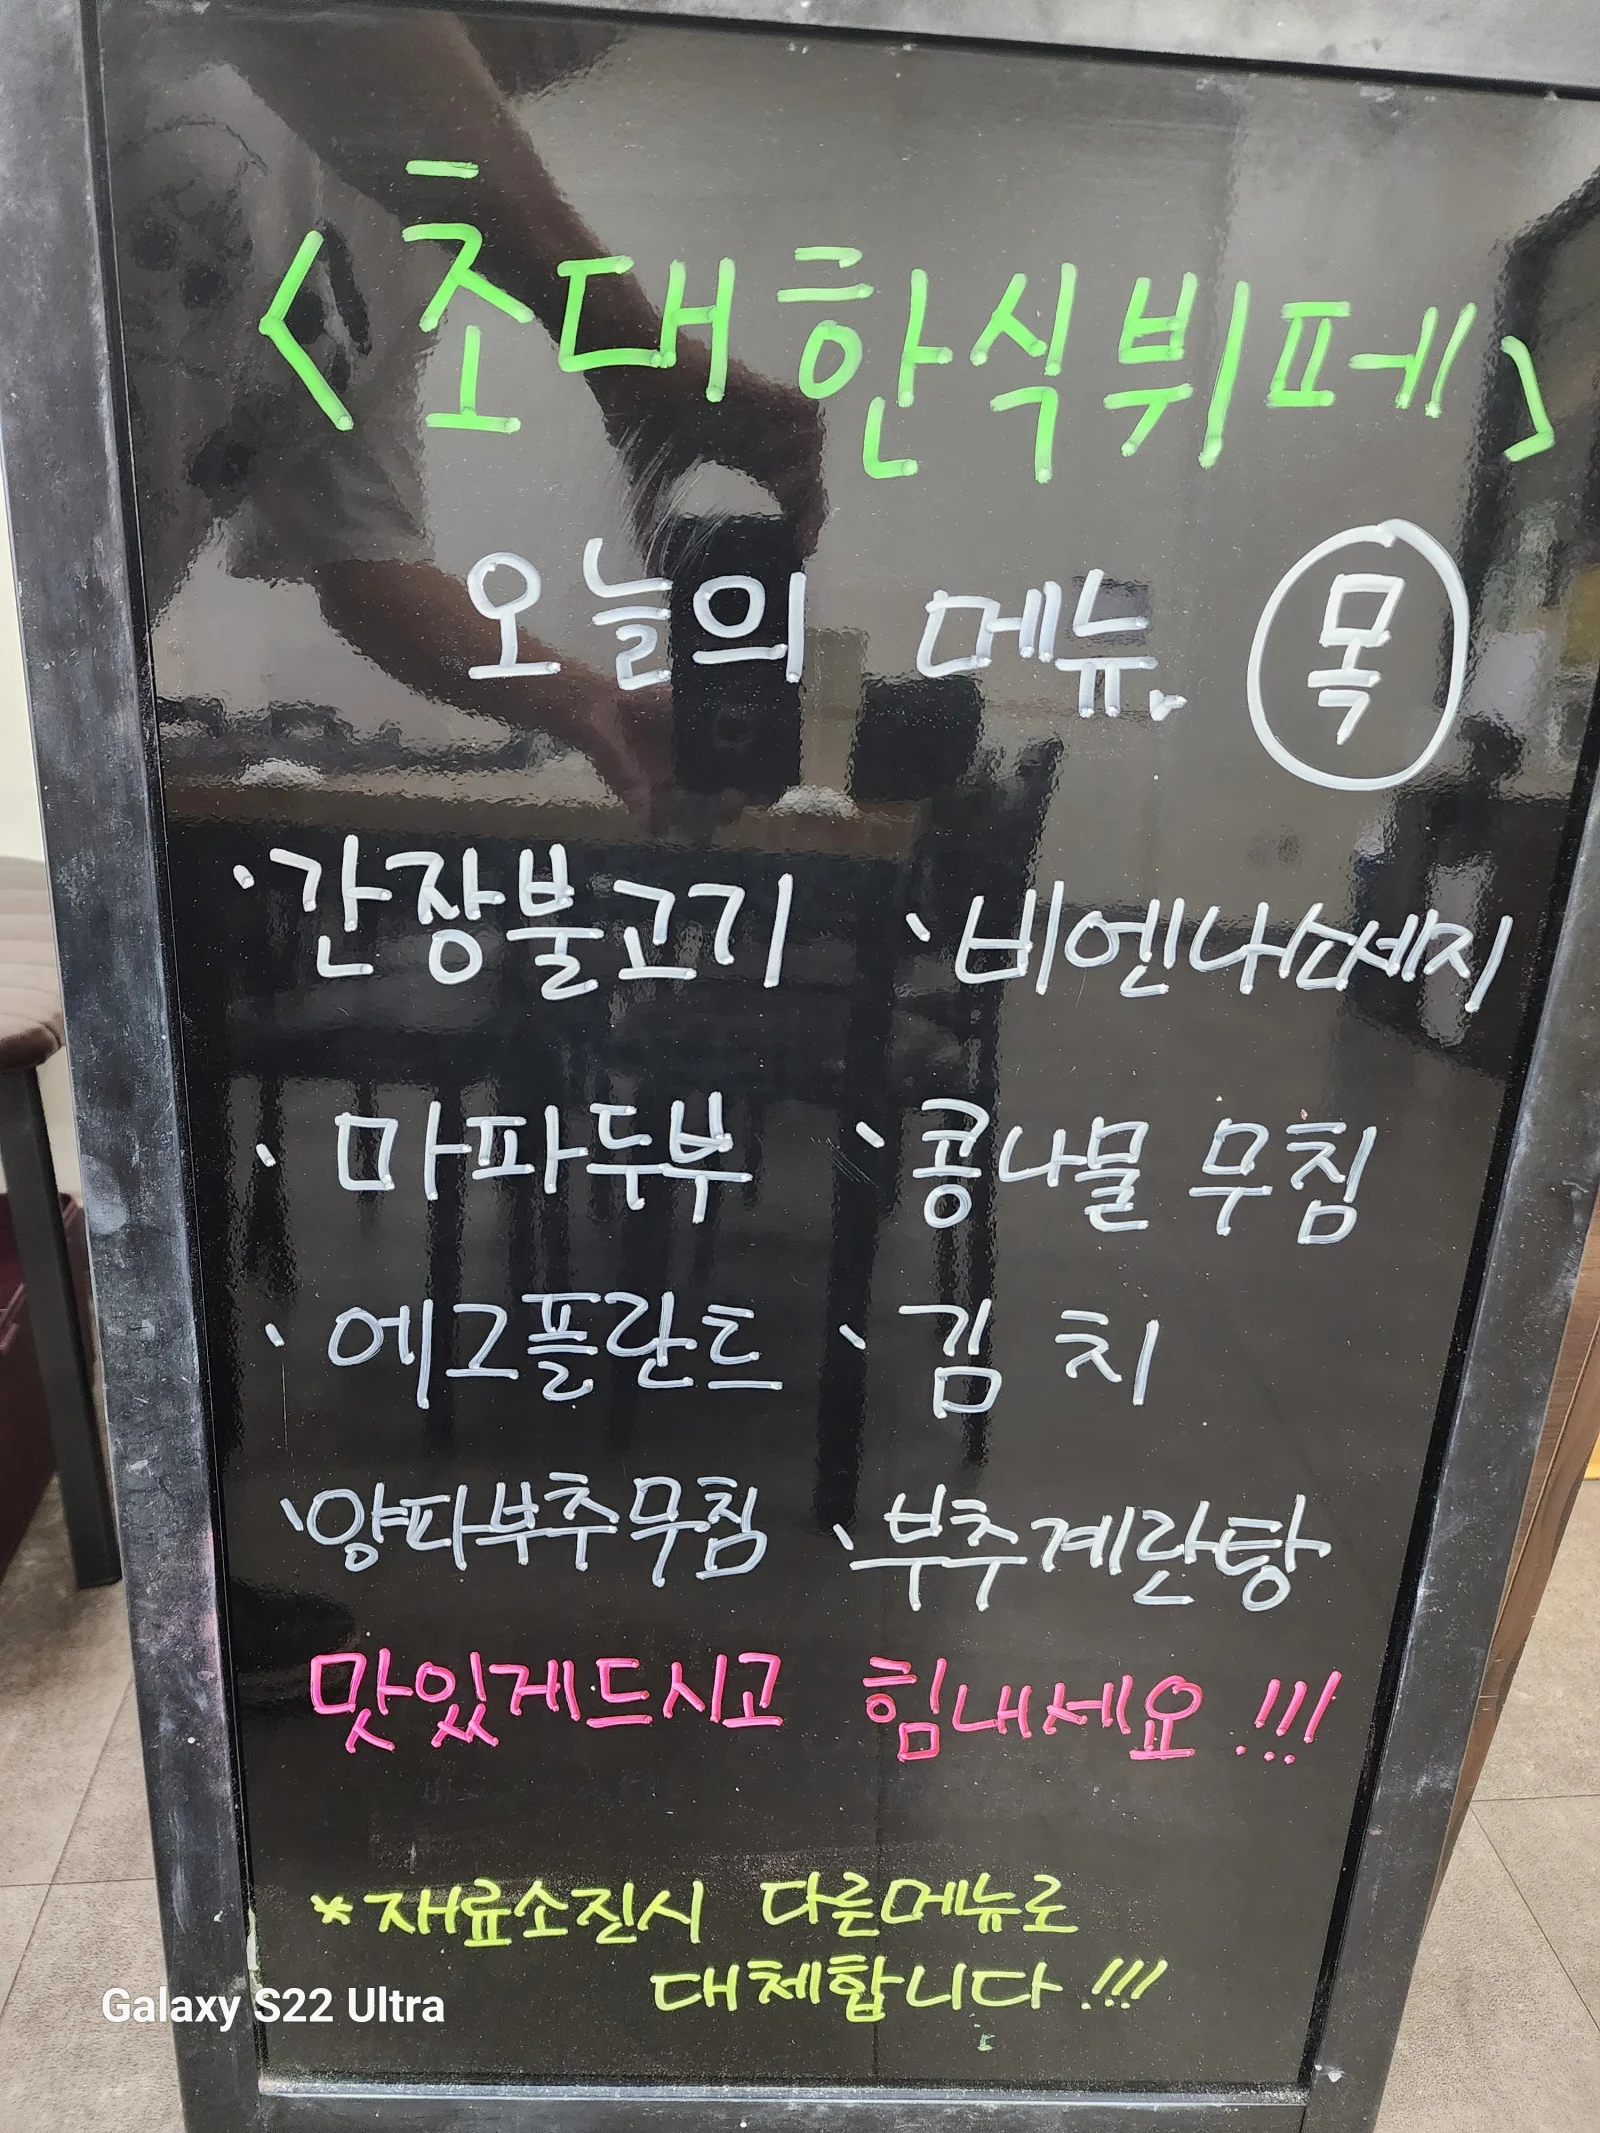 <초대한식뷔페>
오늘의 메뉴. 목
·간장불고기 ·비엔나소세지
·마파두부 ·콩나물 무침
·에그플란트 ·김 치
·양파부추무침 ·부추계란탕
맛있게드시고 힘내세요!!!
*재료소진시 다른메뉴로
대체합니다.!!!
Galaxy S22 Ultra